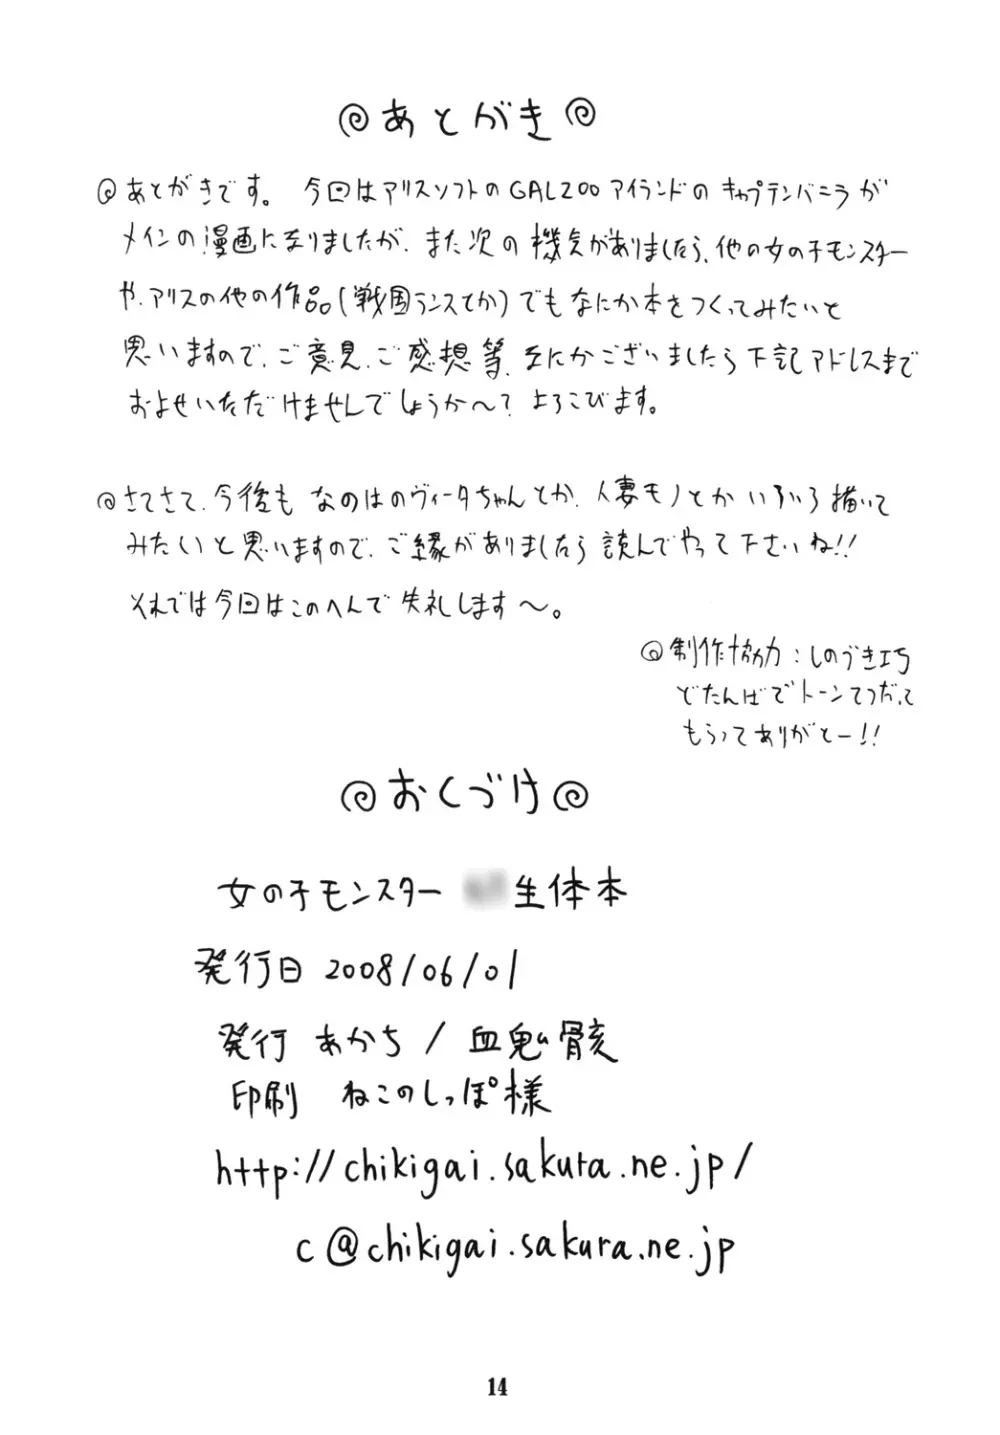 あとがき
あとがきです。 今回はアリスソフトのGALZOOアイランドのキャプテンバニラが
メインの漫画になりましたが、また次の機会がありましたら、他の女の子モンスター
や、アリスの他の作品(戦国ランスとか)でもなにか本をつくってみたいと
思いますので、ご意見、ご感想等、なにかございましたら下記アドレスまで
およせいただけませんでしょうか〜? よろこびます。
さてさて、今後も なのはのヴィータちゃんとか、人妻モノとかいろいろ描いて
みたいと思いますので、ご縁がありましたら読んでやって下さいね!!
それでは今回はこのへんで失礼します〜。
制作協力:しのづき巧
どたんばでトーンてつだって
もらってありがとー!!
おくづけ
女の子モンスター 生体本
発行日 2008/06/01
発行 あかち / 血鬼骸
印刷 ねこのしっぽ様
http://chikigai.sakura.ne.jp/
c@chikigai.sakura.ne.jp
14